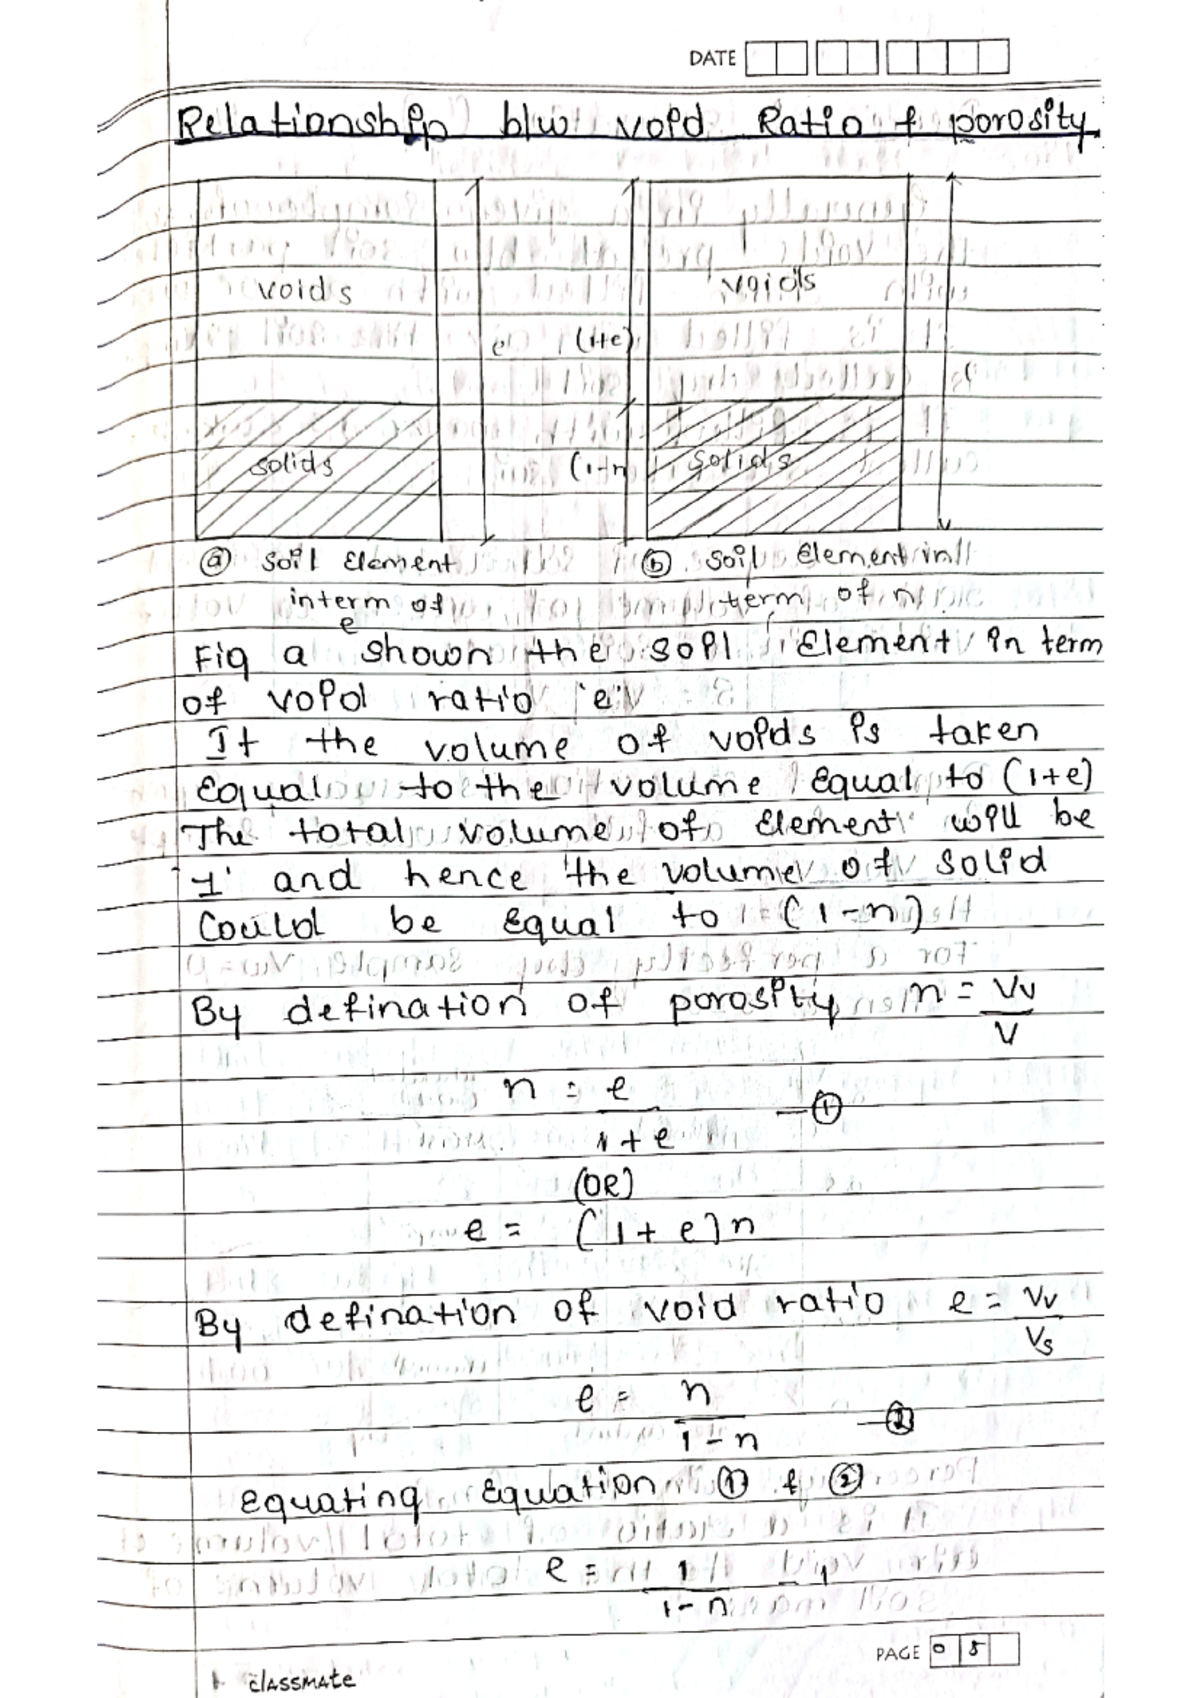 DATE
Relationship b/w void Ratio & porosity
voids
voids
e
(1+e)
solids
(1-n
solids
ⓐ soil Element
interm of
e
ⓑ soil element in
term of n
Fig a shown the soil Element in term
of void ratio 'e'
It the volume of voids is taken
Equal to the volume equal to (1+e)
The total volume of element will be
'1' and hence the volume of solid
Could be equal to (1-n)
By defination of porosity n = Vv
V
n = e
1+e
—①
(OR)
e = (1+e)n
By defination of void ratio e = Vv
Vs
e = n
1-n
—②
Equating Equation ① & ②
e = 1
1-n
PAGE 0 5
classmate